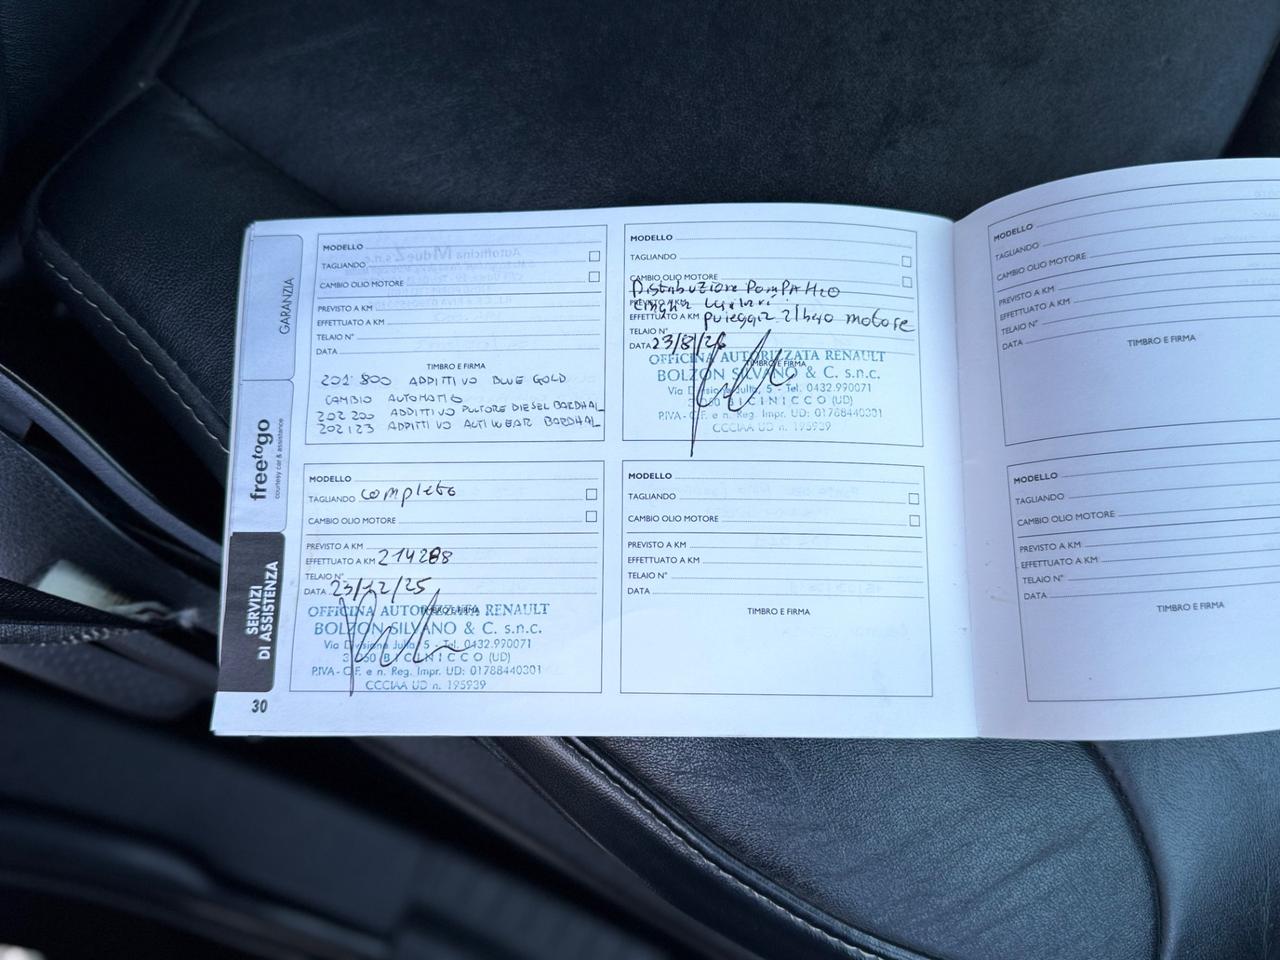 GARANZIA
freetogo
courtesy car & assistance
SERVIZI
DI ASSISTENZA
30
MODELLO
TAGLIANDO
CAMBIO OLIO MOTORE
PREVISTO A KM
EFFETTUATO A KM
TELAIO N°
DATA
TIMBRO E FIRMA
201 800 ADDITIVO BLUE GOLD
CAMBIO AUTOMATIO
202 200 ADDITIVO PULTORE DIESEL BARDHAL
202123 ADDITIVO ACTIWEAR BARDHAL
MODELLO
TAGLIANDO
CAMBIO OLIO MOTORE
Distribuzione PomPA H2O
PREVISTO A KM cinghia
EFFETTUATO A KM puleggia albero motore
TELAIO N°
DATA 23/8/26
TIMBRO E FIRMA
OFFICINA AUTORIZZATA RENAULT
BOLZON SILVANO & C. s.n.c.
Via Divisione Julia, 5 - Tel. 0432.990071
BICINICCO (UD)
P.IVA - C.F. e n. Reg. Impr. UD: 01788440301
CCCIAA UD n. 195939
MODELLO
TAGLIANDO completo
CAMBIO OLIO MOTORE
PREVISTO A KM
EFFETTUATO A KM 214288
TELAIO N°
DATA 23/12/25
TIMBRO E FIRMA
OFFICINA AUTORIZZATA RENAULT
BOLZON SILVANO & C. s.n.c.
Via Divisione Julia, 5 - Tel. 0432.990071
BICINICCO (UD)
P.IVA - C.F. e n. Reg. Impr. UD: 01788440301
CCCIAA UD n. 195939
MODELLO
TAGLIANDO
CAMBIO OLIO MOTORE
PREVISTO A KM
EFFETTUATO A KM
TELAIO N°
DATA
TIMBRO E FIRMA
MODELLO
TAGLIANDO
CAMBIO OLIO MOTORE
PREVISTO A KM
EFFETTUATO A KM
TELAIO N°
DATA
TIMBRO E FIRMA
MODELLO
TAGLIANDO
CAMBIO OLIO MOTORE
PREVISTO A KM
EFFETTUATO A KM
TELAIO N°
DATA
TIMBRO E FIRMA